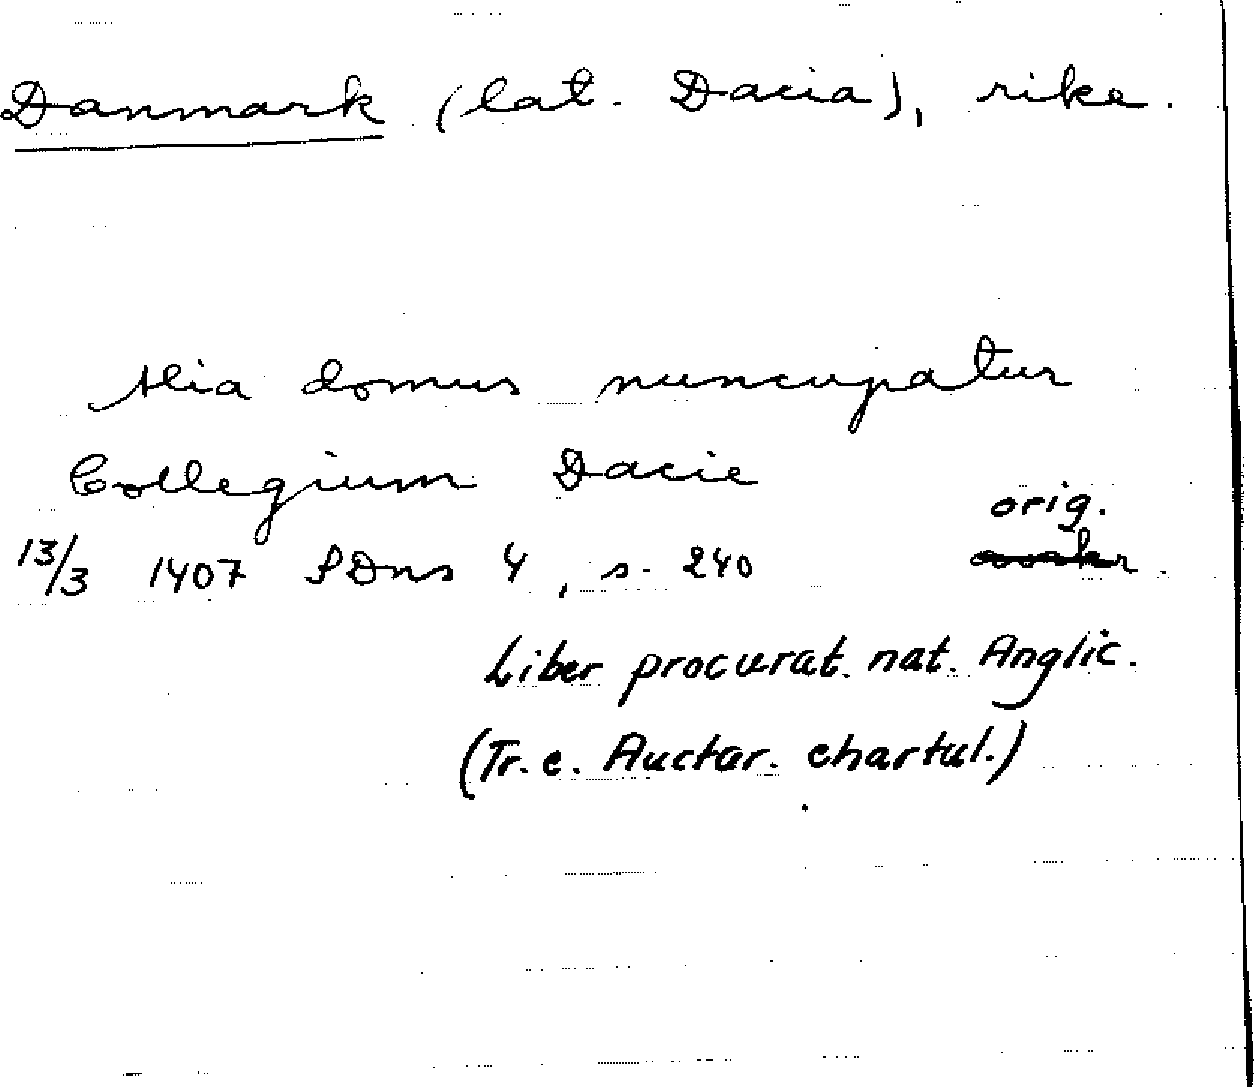 Danmark (lat. Dacia), rike.
Alia domus nuncupatur
Collegium Dacie
orig.
13/3 1407 SDns 4, s. 240
Liber procurat. nat. Anglic.
(Tr. e. Auctar. chartul.)